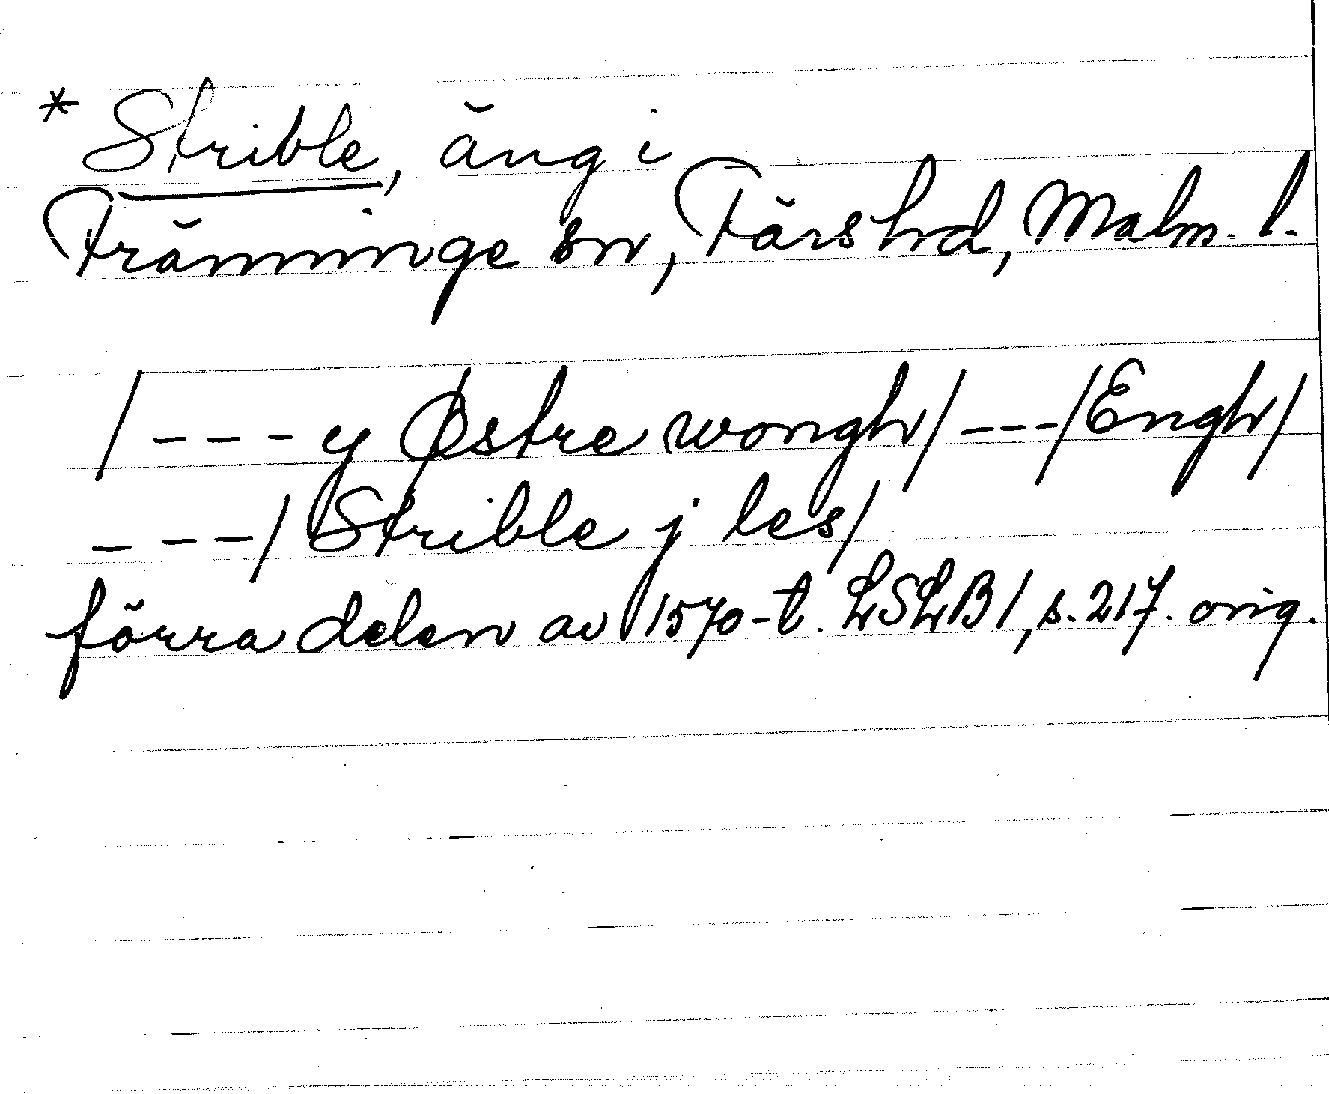 * Strible, äng i
Tranninge sn, Färs hd, Malm. l.
/---y Østre wongh/---/Engh/
---/Strible j les/
förra delen av 1570-t. LSLB1, s. 217. orig.